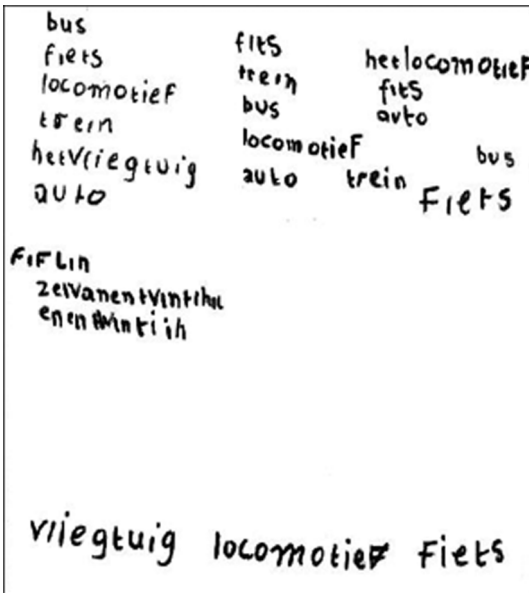 bus
fiets
locomotief
trein
hetvriegtuig
auto
fits
trein
bus
locomotief
auto trein
hetlocomotief
fits
auto
bus
Fiets
FiFLin
vliegtuig locomotief Fiets